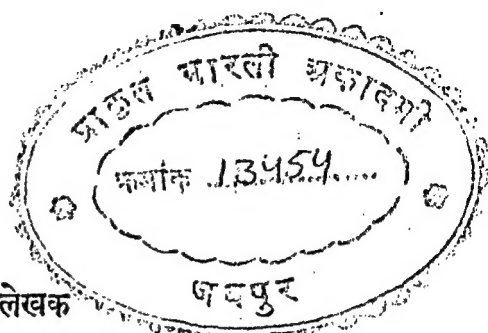 प्राकृत भारती अकादमी
क्रमांक 13454
जयपुर
लेखक